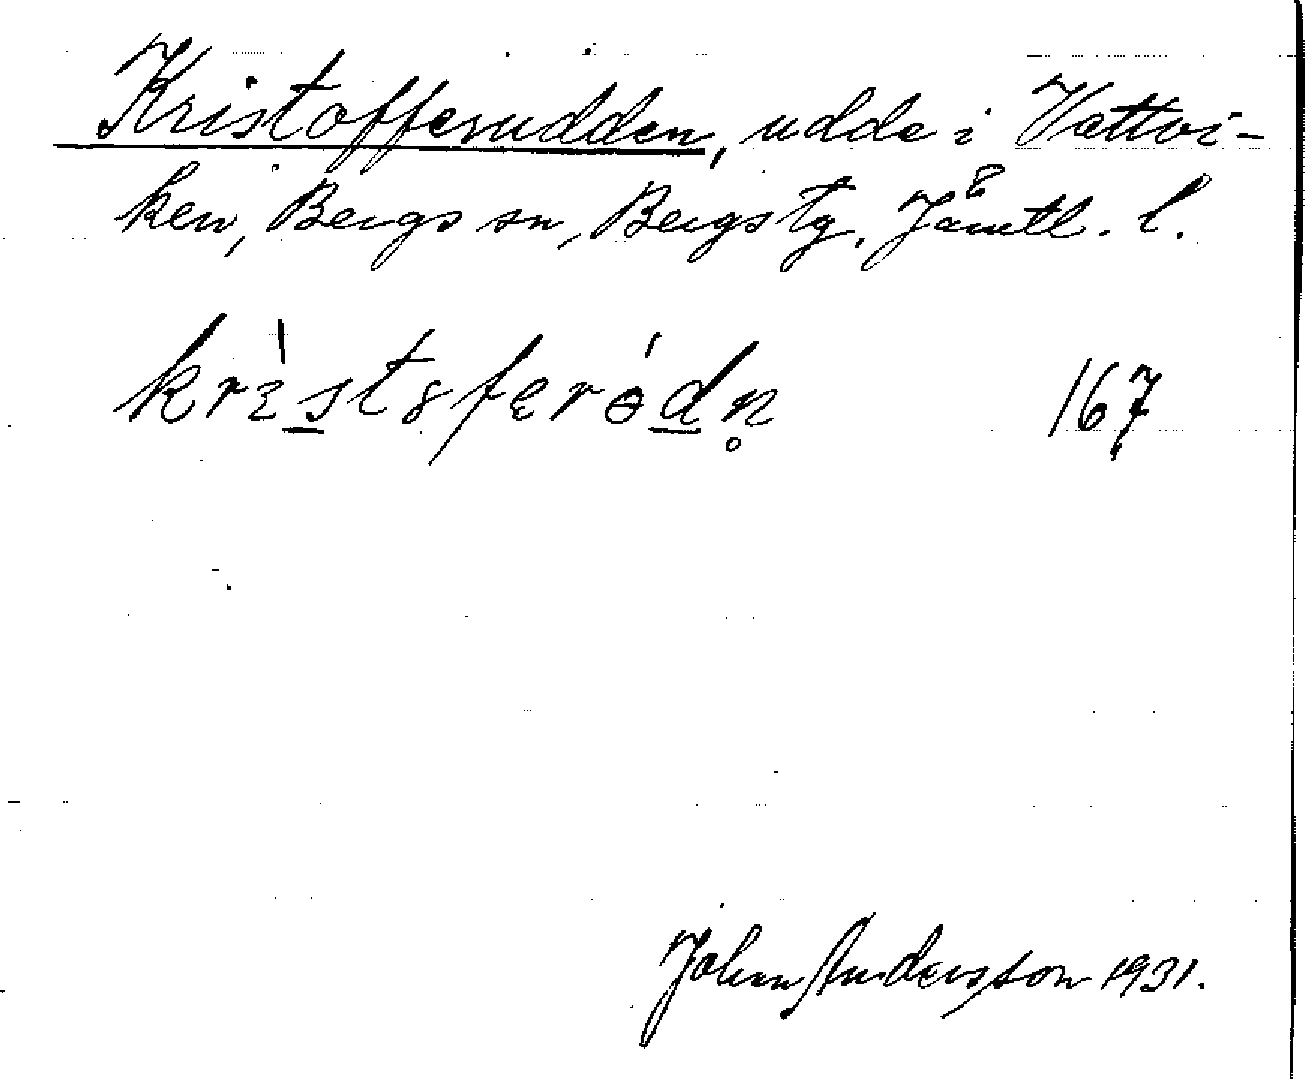 Kristofferudden, udde i Vattvi-
ken, Bergs sn, Bergs tg. Jämtl. l.
krɪ̀stɞferɵ́dn̥ 167
John Andersson 1931.